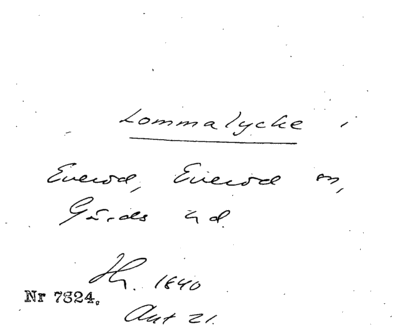 Lommalycke
Everöd, Everöd sn,
Gärds hd.
Jh. 1840
Nr 7324.
Akt 21.